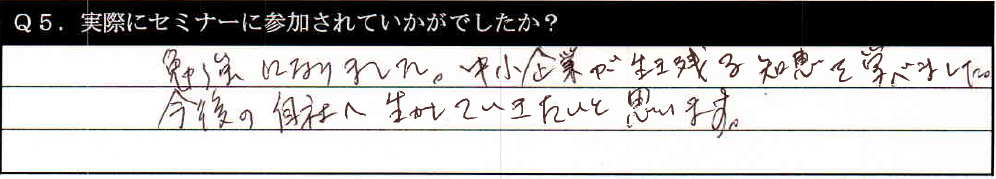 Q5．実際にセミナーに参加されていかがでしたか？
勉強になりました。中小企業が生き残る知恵を学べました。
今後の自社へ生かしていきたいと思います。